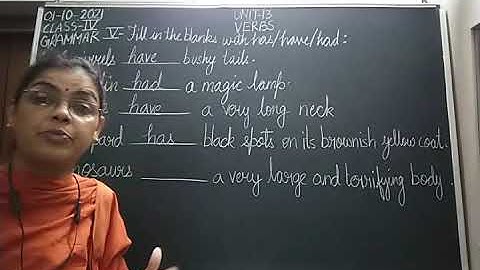 01-10-2021 UNIT-13
CLASS-IV VERBS
GRAMMAR V- Fill in the blanks with has/have/had:
have bushy tails.
had a magic lamp.
have a very long neck
has black spots on its brownish yellow coat.
a very large and terrifying body.